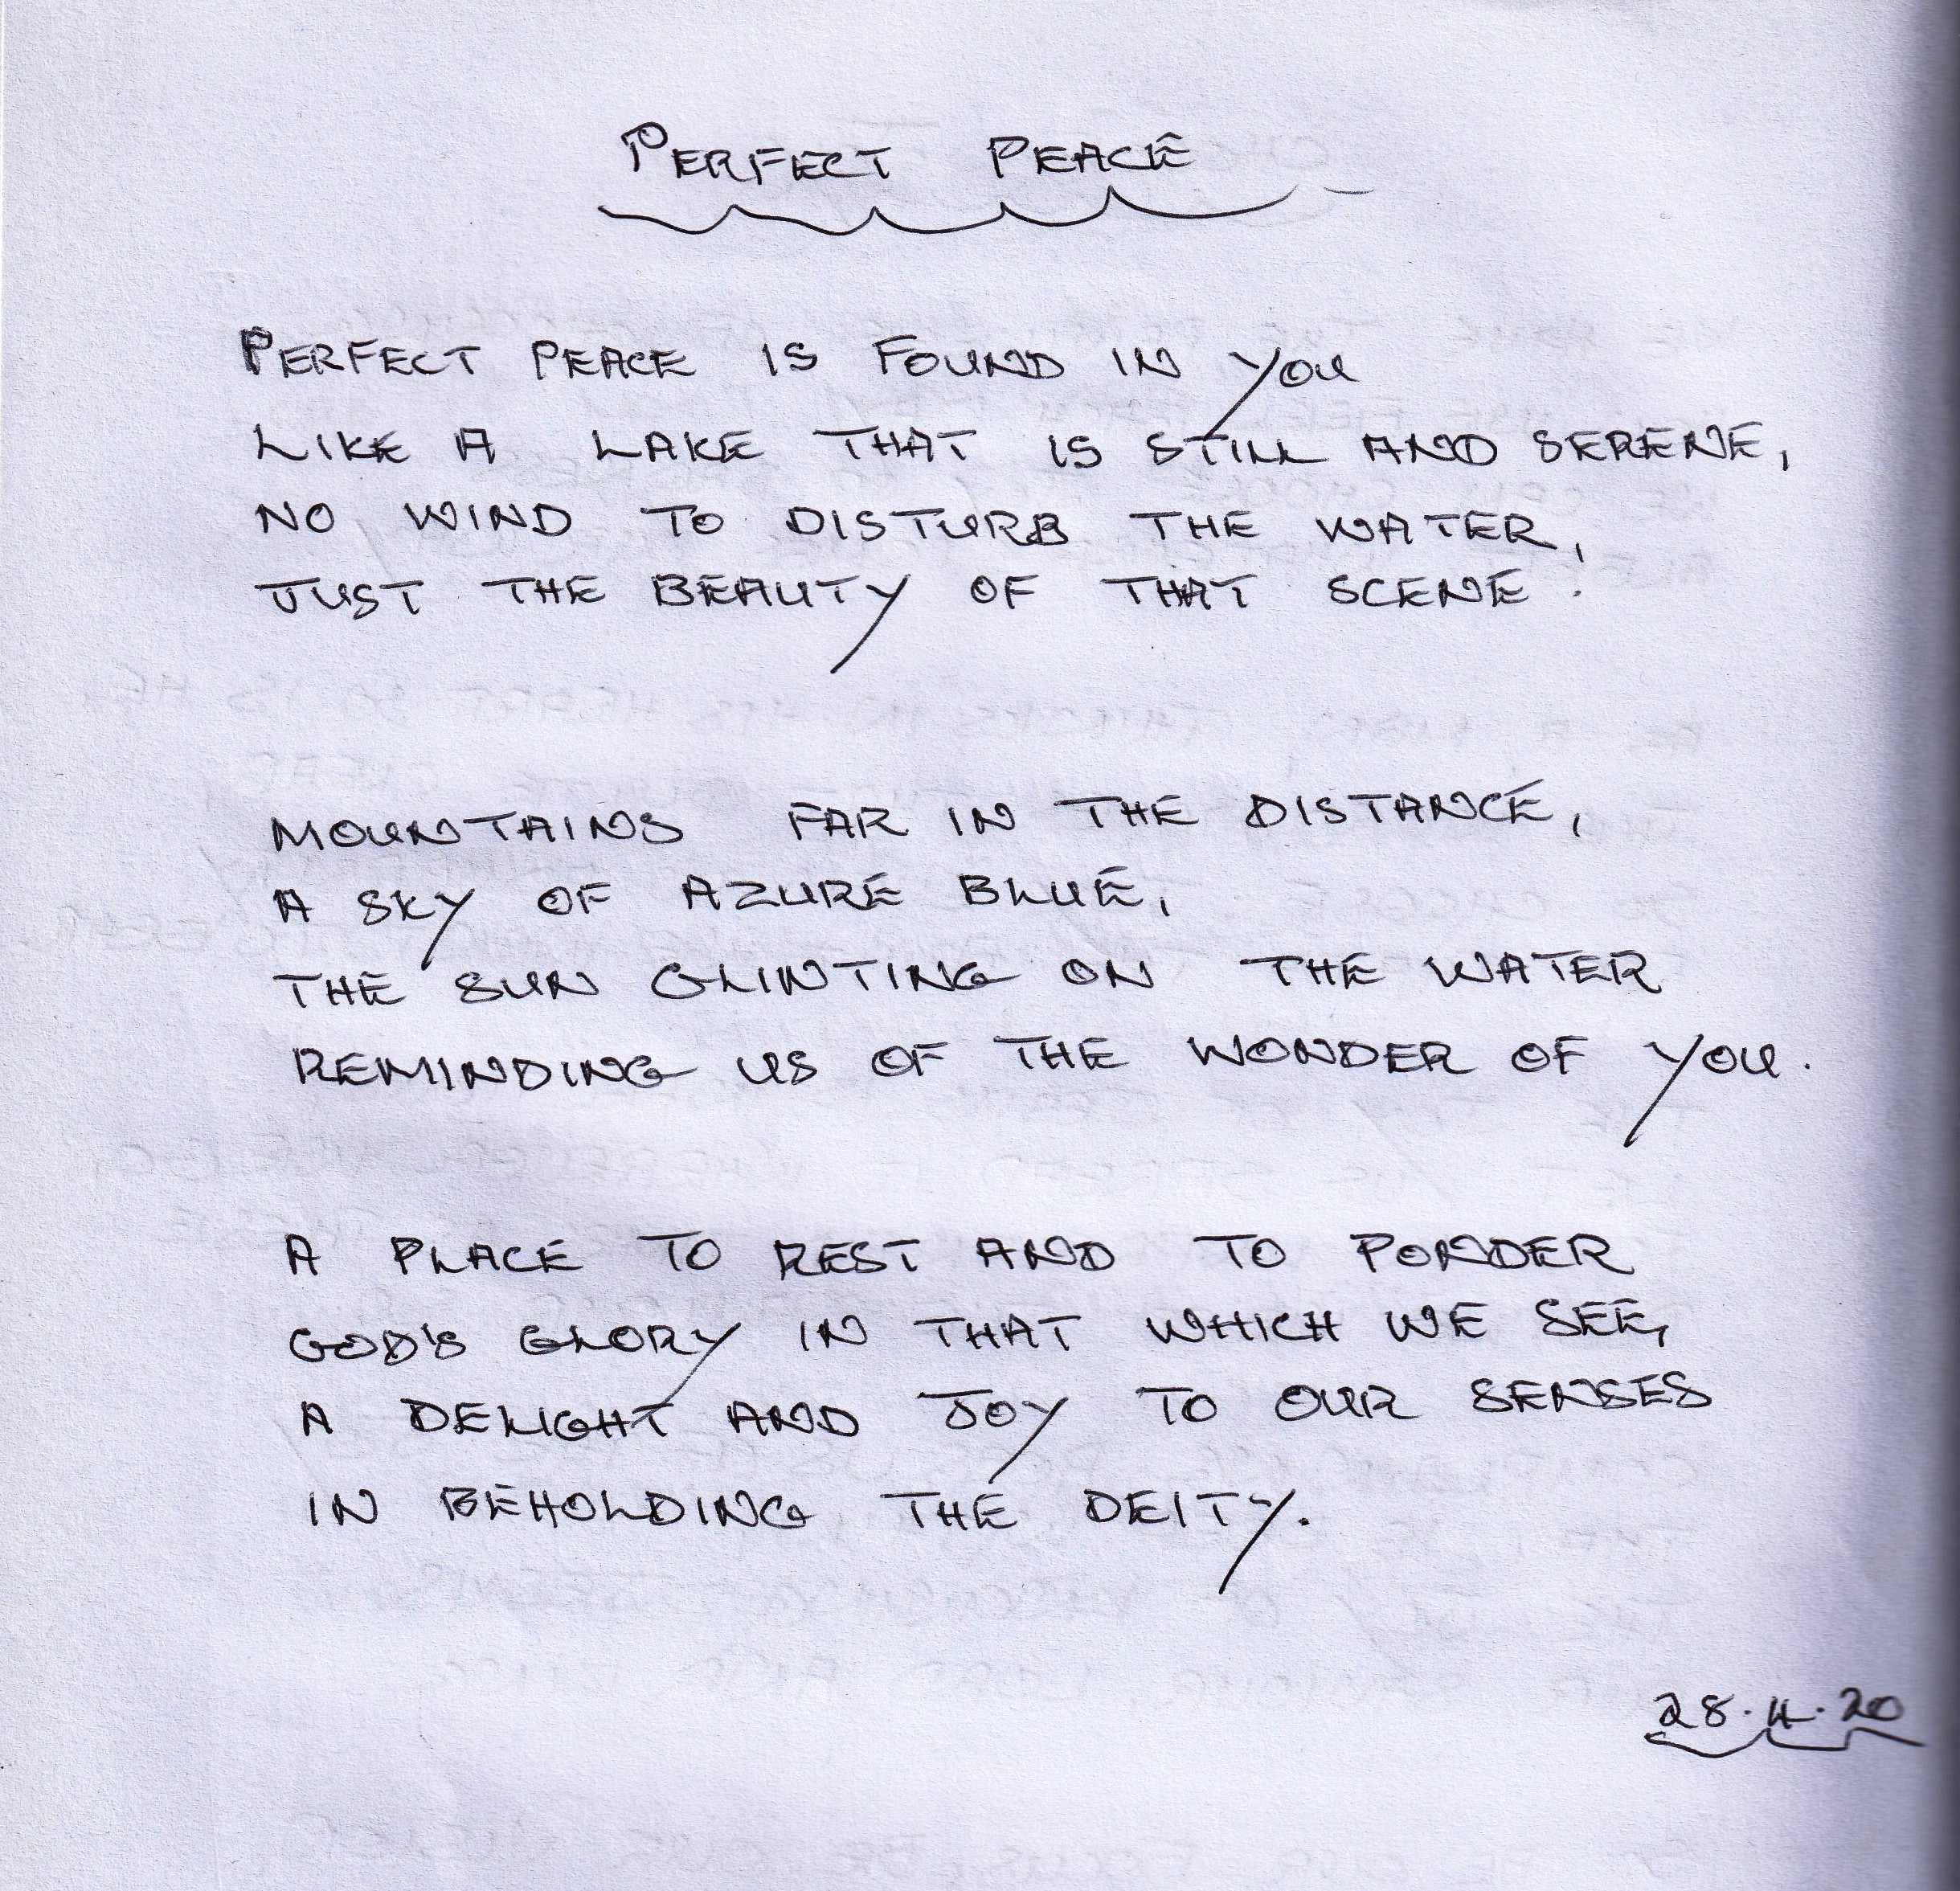 PERFECT PEACE
PERFECT PEACE IS FOUND IN YOU
LIKE A LAKE THAT IS STILL AND SERENE,
NO WIND TO DISTURB THE WATER,
JUST THE BEAUTY OF THAT SCENE.
MOUNTAINS FAR IN THE DISTANCE,
A SKY OF AZURE BLUE,
THE SUN GLINTING ON THE WATER
REMINDING US OF THE WONDER OF YOU.
A PLACE TO REST AND TO PONDER
GOD'S GLORY IN THAT WHICH WE SEE,
A DELIGHT AND JOY TO OUR SENSES
IN BEHOLDING THE DEITY.
28.4.20